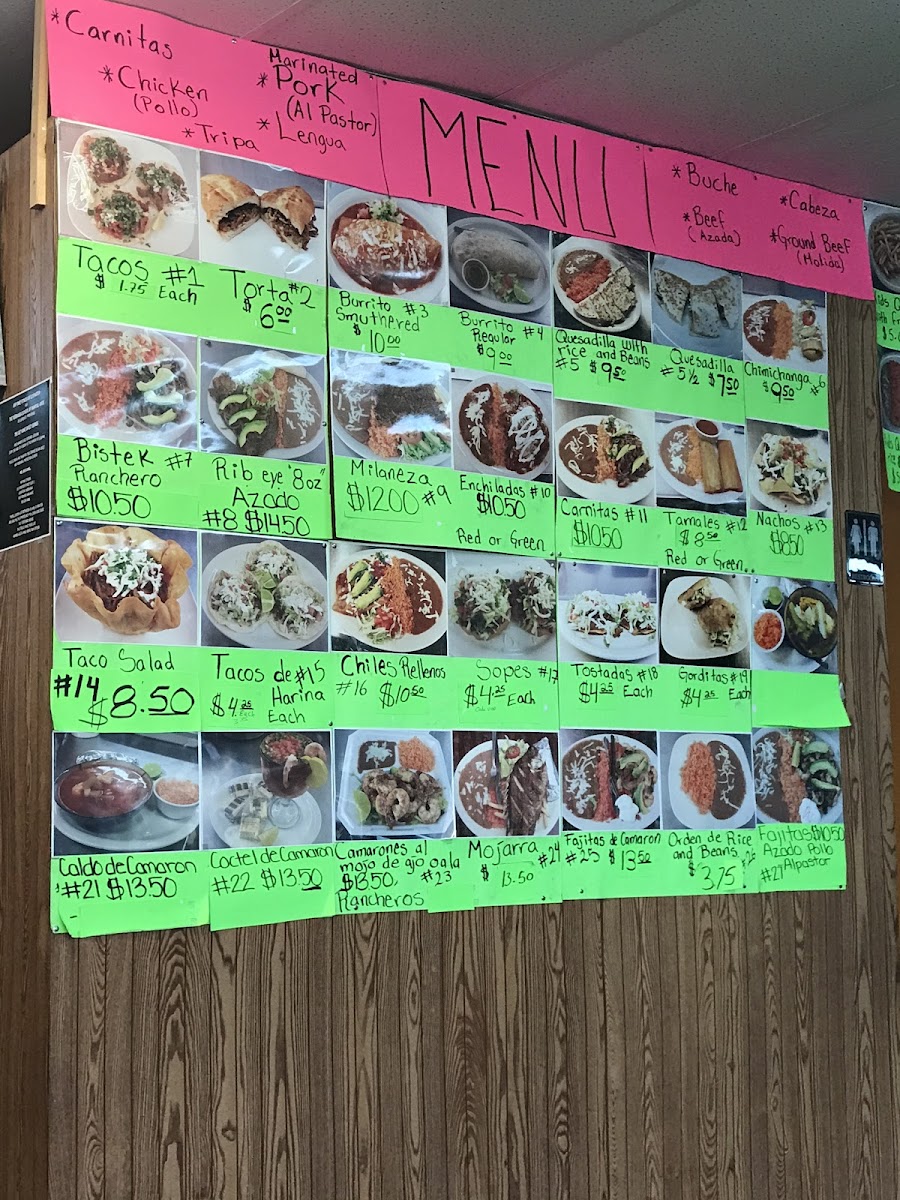 *Carnitas
*Chicken
(Pollo)
*Tripa
Marinated
*Pork
(Al Pastor)
*Lengua
MENU
*Buche
*Beef
(Azada)
*Cabeza
*Ground Beef
(Molida)
Tacos #1
$1.75 Each
Torta #2
$6.00
Burrito #3
Smuthered
$10.00
Burrito #4
Regular
$9.00
Quesadilla with
rice and Beans
#5 $9.50
Quesadilla
#5 1/2 $7.50
Chimichanga #6
$9.50
Bistek #7
Ranchero
$10.50
Rib eye "8oz"
Azado
#8 $14.50
Milaneza
$12.00 #9
Enchiladas #10
$10.50
Red or Green
Carnitas #11
$10.50
Tamales #12
$8.50
Red or Green
Nachos #13
$8.50
Taco Salad
#14 $8.50
Tacos de #15
Harina
$4.25
Each
Chiles Rellenos
#16 $10.50
Sopes #17
$4.25 Each
Tostadas #18
$4.25 Each
Gorditas #19
$4.25 Each
Caldo de Camaron
#21 $13.50
Coctel de Camaron
#22 $13.50
Camarones al
mojo de ajo o a la
$13.50, #23
Rancheros
Mojarra #24
$13.50
Fajitas de Camaron
#25 $13.50
Orden de Rice
and Beans
$3.75
Fajitas $10.50
Azado Pollo
#27 Alpastor